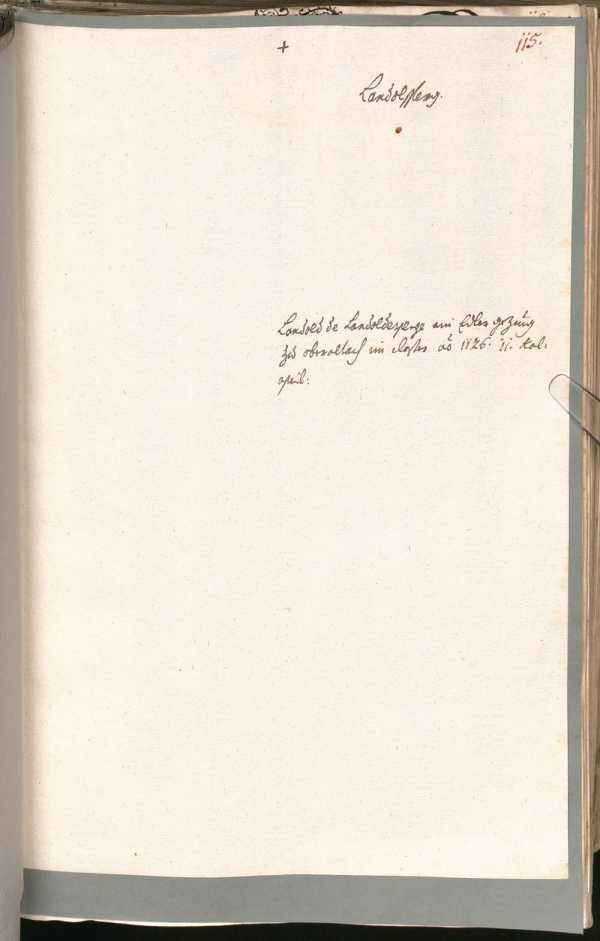 115.
+
Landolsperg.
Landold de Landoldesperge ain Edler gezeüg
zu obernaltach im closter aō 1126. 11. Kal:
april: